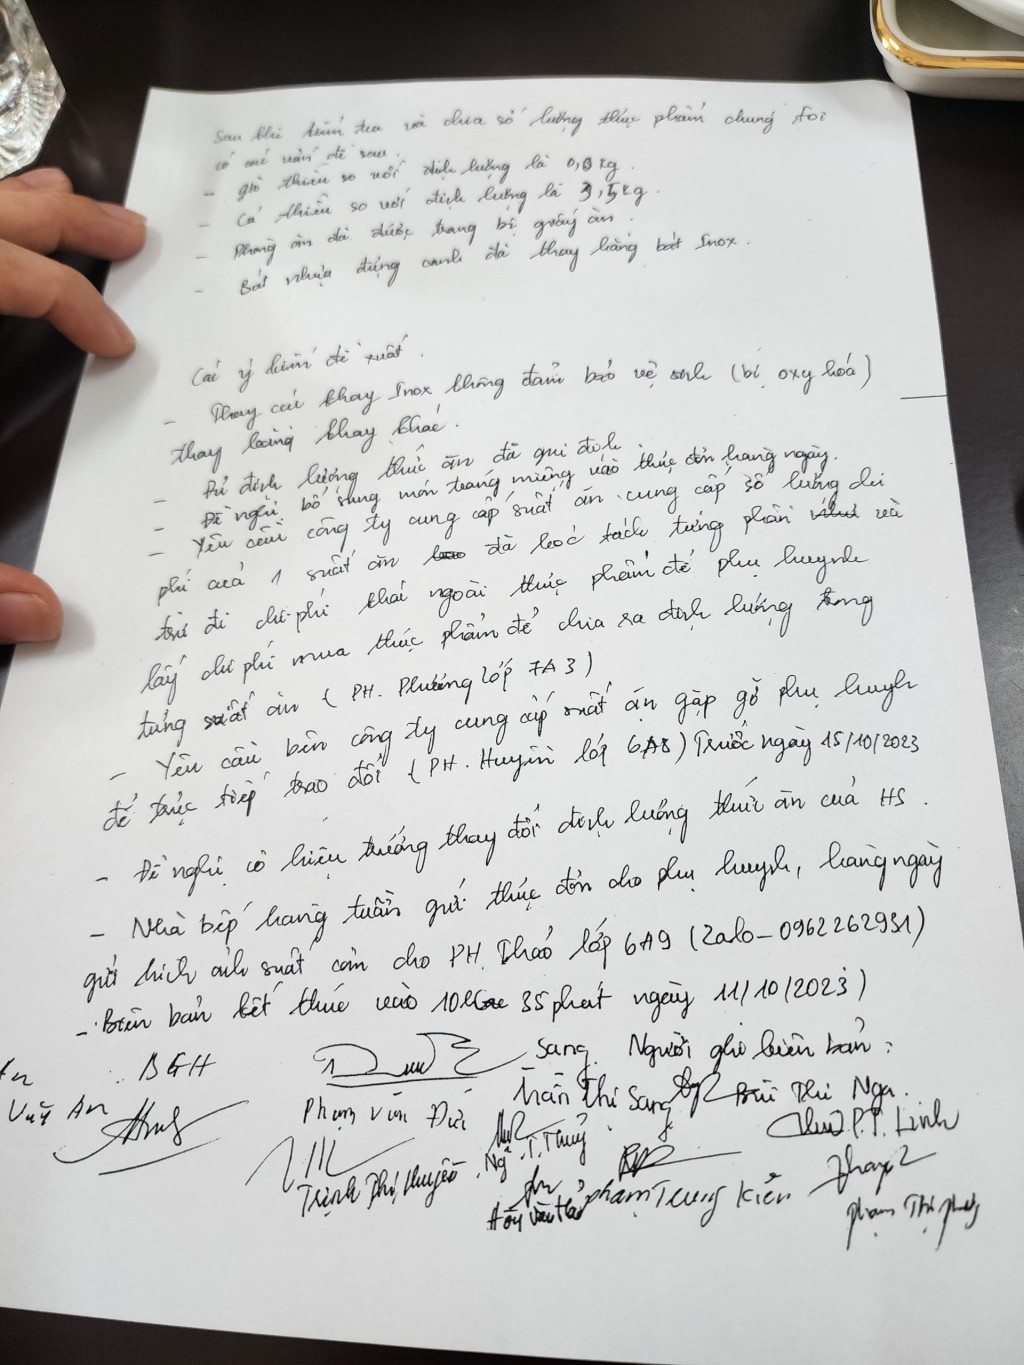 Sau khi kiểm tra và chia số lượng thực phẩm chung tôi
có các vấn đề sau.
- giò thiếu so với định lượng là 0,8 kg.
- Cá thiếu so với định lượng là 3,5kg.
- Phòng ăn đã được trang bị giấy ăn.
- Bát nhựa đựng canh đã thay bằng bát Inox.
Các ý kiến đề xuất.
- Thay các khay Inox không đảm bảo vệ sinh (bị oxy hóa)
thay bằng khay khác.
- Đủ định lượng thức ăn đã qui định
- Đề nghị bổ sung món tráng miệng vào thực đơn hàng ngày.
- Yêu cầu công ty cung cấp suất ăn cung cấp số lượng chi
phí của 1 suất ăn đã bóc tách từng phần và
trừ đi chi phí khác ngoài thực phẩm để phụ huynh
lấy chi phí mua thực phẩm để chia ra định lượng trong
từng suất ăn (PH. Phương lớp 7A3)
- Yêu cầu bên công ty cung cấp suất ăn gặp gỡ phụ huynh
để trực tiếp trao đổi (PH. Huyền lớp 6A8) Trước ngày 15/10/2023
- Đề nghị có hiệu trưởng thay đổi định lượng thức ăn của HS.
- Nhà bếp hàng tuần gửi thực đơn cho phụ huynh, hàng ngày
gửi hình ảnh suất cơm cho PH. Thảo lớp 6A9 (Zalo - 0962262931)
- Biên bản kết thúc vào 10 35 phát ngày 11/10/2023)
BGH Sang. Người ghi biên bản:
Trần Thị Sang Bùi Thị Nga.
Phạm Văn Đức P.T. Linh
Ngô.T.Thuỷ
Trịnh Thị Huyền
Phạm Trung Kiên
Phạm Thị